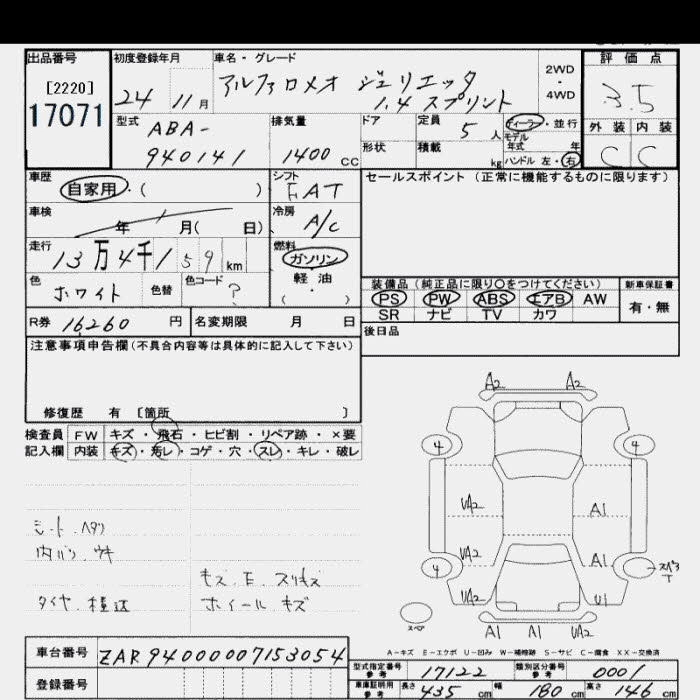 出品番号 初度登録年月 車名・グレード 評価点
[2220]
17071
24 11月 アルファロメオ ジュリエッタ 2WD
1.4 スプリント ・ 4WD
3.5
型式 ABA- 940141
排気量 1400 CC
ドア 定員 5人 ディーラー・並行
形状 積載 kg モデル年式 年
ハンドル 左・右
外装 内装
C C
車歴 自家用・( ) シフト FAT
セールスポイント (正常に機能するものに限ります)
車検 年 月( 日) 冷房 A/C
走行 13万4千159km 燃料 ガソリン
軽油
( ・ )
色 ホワイト 色替 色コード ?
装備品(純正品に限り〇をつけてください) 新車保証書
PS PW ABS エアB AW 有・無
SR ナビ TV カワ
R券 16260円 名変期限 月 日
後日品
注意事項申告欄(不具合内容等は具体的に記入して下さい)
修復歴 有 [箇所 ]
検査員 FW キズ・飛石・ヒビ割・リペア跡・×要
記入欄 内装 キズ・汚レ・コゲ・穴・スレ・キレ・破レ
A2 A2
4 4
UA2 A1
UA2 A1
4 スペア T
UA2 U1
A1 A1 UA2
スペア
シート ヘタリ
内バリ ウキ
キズ、E、スリキズ
タイヤ 種違 ホイール キズ
A-キズ E-エクボ U-凹み W-補修跡 S-サビ C-腐食 XX-交換済
車台番号 ZAR94000007153054
登録番号
型式指定番号 参考 17122 類別区分番号 参考 0001
車庫証明用 参考 長さ 435 cm 幅 180 cm 高さ 146 cm